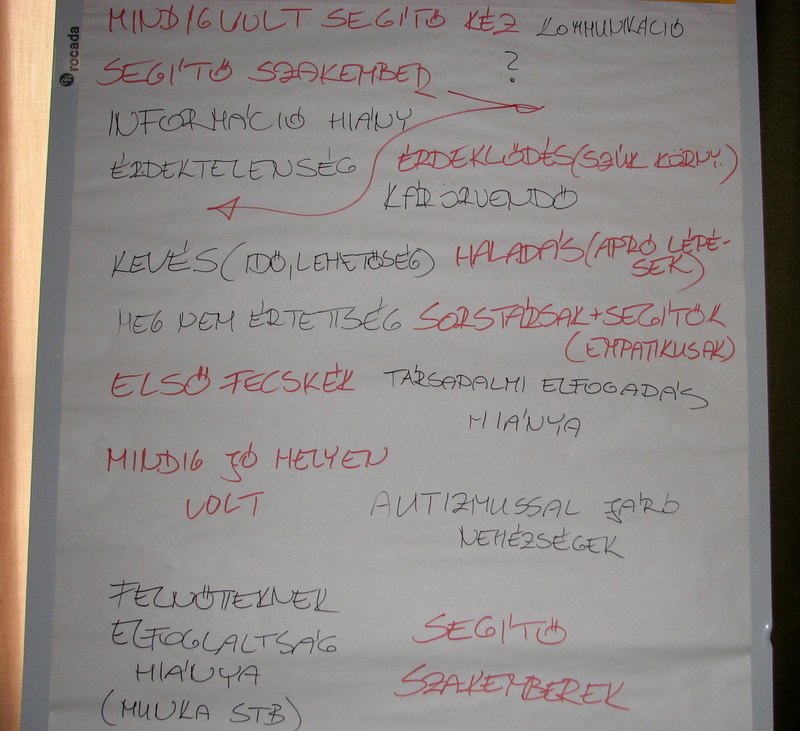 rocada
MINDIG VOLT SEGÍTŐ KÉZ KOMMUNIKÁCIÓ
?
SEGÍTŐ SZAKEMBER
INFORMÁCIÓ HIÁNY
ÉRDEKTELENSÉG ÉRDEKLŐDÉS (SZŰK KÖRNY.)
KÁRÖRVENDŐ
KEVÉS (IDŐ, LEHETŐSÉG) HALADÁS (APRÓ LÉPÉ-
SEK)
MEG NEM ÉRTETTSÉG SORSTÁRSAK + SEGÍTŐK
(EMPATIKUSAK)
ELSŐ FECSKÉK TÁRSADALMI ELFOGADÁS
HIÁNYA
MINDIG JÓ HELYEN
VOLT
AUTIZMUSSAL JÁRÓ
NEHÉZSÉGEK
FELNŐTTEKNEK
ELFOGLALTSÁG
HIÁNYA
(MUNKA STB)
SEGÍTŐ
SZAKEMBEREK